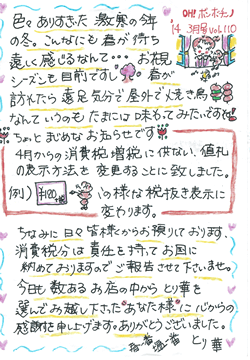 OH! ポンポチ
'14 3月号 Vol.110
色々ありすぎた激寒の今年
の冬。こんなにも春が待ち
遠しく感じるなんて… お花見
シーズンも目前ですし 春が
訪れたら遠足気分で屋外で火焼き鳥
なんていうのもたまには味もってみたいですね
ちょっとまじめなお知らせです
4月からの消費税増税に供ない、値札
の表示方法を変更することに致しました。
例) ¥120+税 この様な税抜き表示に
変わります。
ちなみに日々皆様からお預りしております
消費税分は責任を持ってお国に
納めておりますのでご報告させて下さいませ。
今日も数あるお店の中からとり華を
選んでお越し下さった"あなた様"に心からの
感謝を申し上げます。ありがとうございました。
とり華